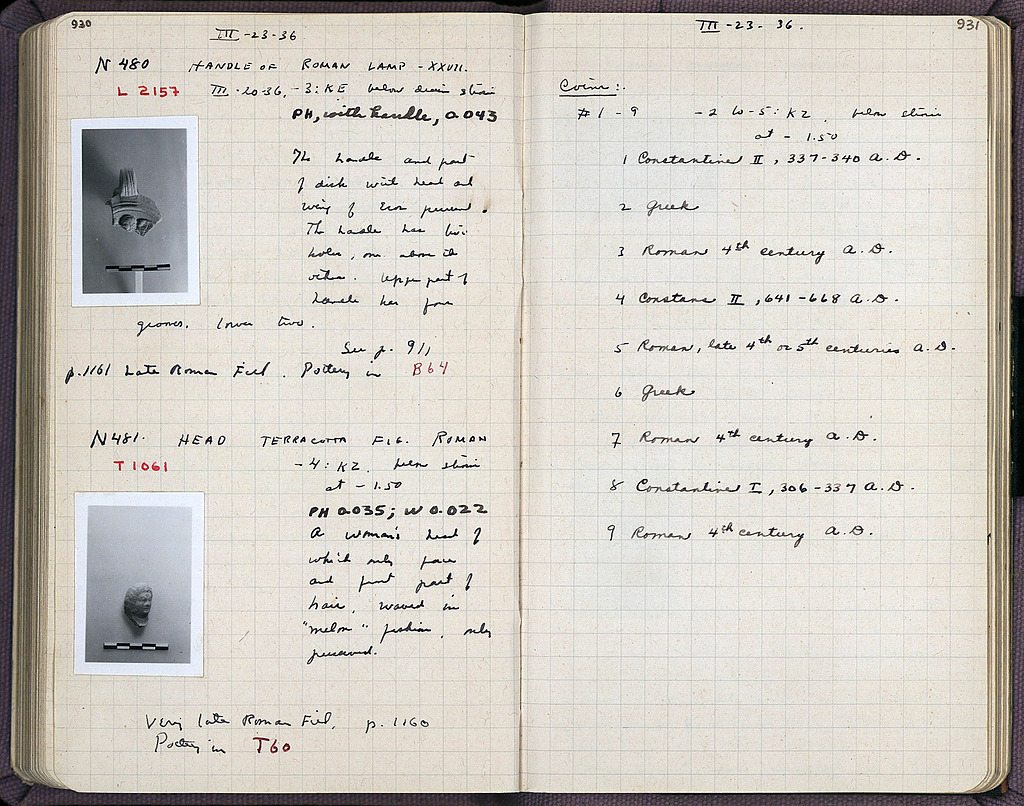 930
III-23-36
N 480 HANDLE OF ROMAN LAMP - XXVII.
L 2157 III-20-36, -3:KE below strosis
PH, with handle, 0.043
The handle and part
of disk with head and
wing of Eros preserved.
The handle has two
holes, one above the
other. Upper part of
handle has four
grooves. lower two.
See p. 911
p.1161 Late Roman Fill. Pottery in B64
N 481. HEAD TERRACOTTA FIG. ROMAN
T 1061 -4:KZ. below
at -1.50
PH 0.035; W 0.022
A woman's head of
which only face
and front part of
hair, waved in
"melon" fashion, only
preserved.
Very late Roman Fill, p. 1160
Pottery in T60
931
III-23-36.
Coins:
#1-9 -2 W-5:KZ. below
at -1.50
1 Constantine II, 337-340 A.D.
2 Greek
3 Roman 4th century A.D.
4 Constans II, 641-668 A.D.
5 Roman, late 4th or 5th centuries A.D.
6 Greek
7 Roman 4th century A.D.
8 Constantine I, 306-337 A.D.
9 Roman 4th century A.D.